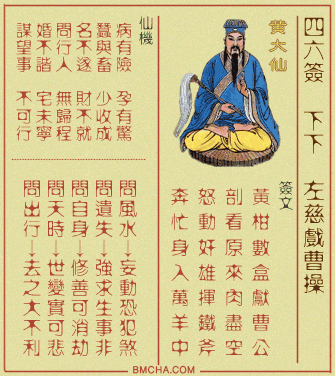 四六簽 下下 左慈戲曹操
黃大仙
簽文
黃柑數盒獻曹公
剖看原來肉盡空
怒動奸雄揮鐵斧
奔忙身入萬羊中
仙機
病有險 孕有驚
蠶與畜 少收成
名不遂 財不就
問行人 無歸程
婚不諧 宅未寧
謀望事 不可行
問風水→妄動恐犯煞
問遺失→強求生事非
問自身→修善可消劫
問天時→世變實可悲
問出行→去之大不利
BMCHA.COM